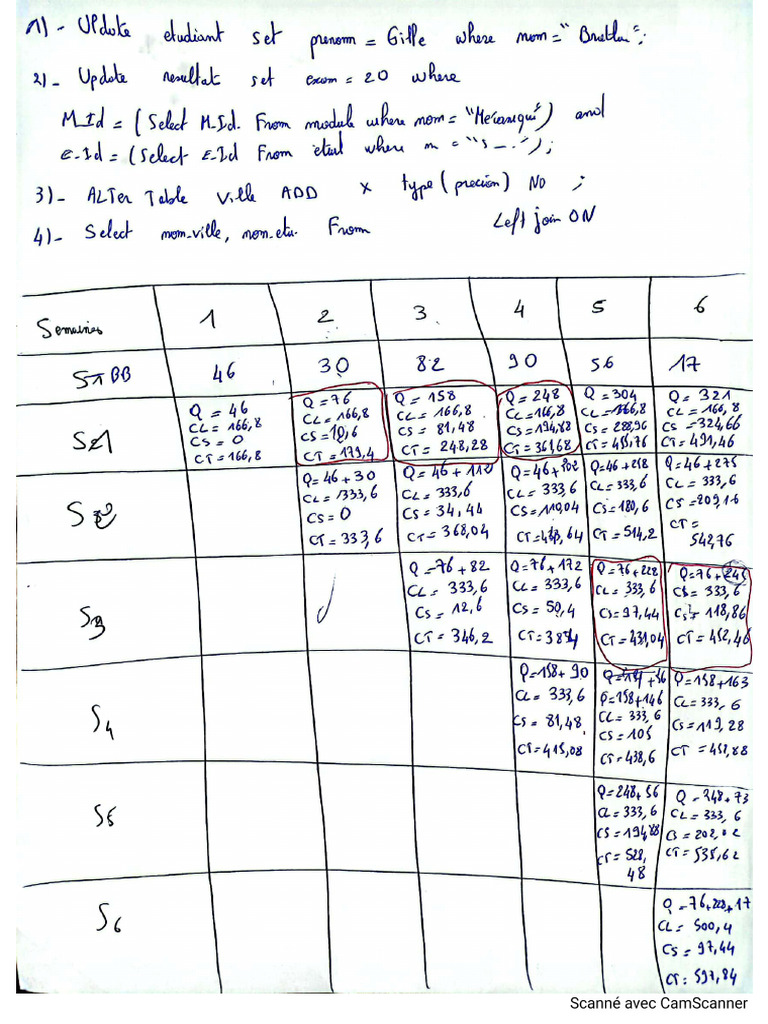 1)- Update etudiant set prenom = Gille where nom="
2)- Update resultat set exam = 20 where
M_Id = (Select M_Id. From module where nom= "Mecanique") and
E_Id = (Select E_Id From etud where n = "S_.");
3)- ALTer Table Ville ADD x type (precion) NO ;
4)- Select nom_ville, nom_etu. From Left join ON
Semaines 1 2 3 4 5 6
BB 46 30 82 90 56 17
S1
Q = 46
CL = 166,8
CS = 0
CT = 166,8
Q = 76
CL = 166,8
CS = 10,6
CT = 179,4
Q = 158
CL = 166,8
CS = 81,48
CT = 248,28
Q = 248
CL = 166,8
CS = 194,88
CT = 361,68
Q = 304
CL = 166,8
CS = 288,96
CT = 455,76
Q = 321
CL = 166,8
CS = 324,66
CT = 491,46
S2
Q = 46 + 30
CL = 333,6
CS = 0
CT = 333,6
Q = 46 + 112
CL = 333,6
CS = 34,44
CT = 368,04
Q = 46 + 202
CL = 333,6
CS = 119,04
CT = 64
Q = 46 + 258
CL = 333,6
CS = 180,6
CT = 514,2
Q = 46 + 275
CL = 333,6
CS = 209,16
CT =
542,76
S3
Q = 76 + 82
CL = 333,6
CS = 12,6
CT = 346,2
Q = 76 + 172
CL = 333,6
CS = 50,4
CT = 384
Q = 76 + 228
CL = 333,6
CS = 97,44
CT = 431,04
Q = 76 + 245
CS = 333,6
CS = 118,86
CT = 452,46
S4
Q = 158 + 90
CL = 333,6
CS = 81,48
CT = 415,08
Q = 158 + 146
CL = 333,6
CS = 105
CT = 438,6
Q = 158 + 163
CL = 333,6
CS = 119,28
CT = 452,88
S5
Q = 248 + 56
CL = 333,6
CS = 194,88
CT = 528,
48
Q = 248 + 73
CL = 333,6
CS = 202,02
CT = 535,62
S6
Q = 76 + 228 + 17
CL = 500,4
CS = 97,44
CT = 597,84
Scanné avec CamScanner